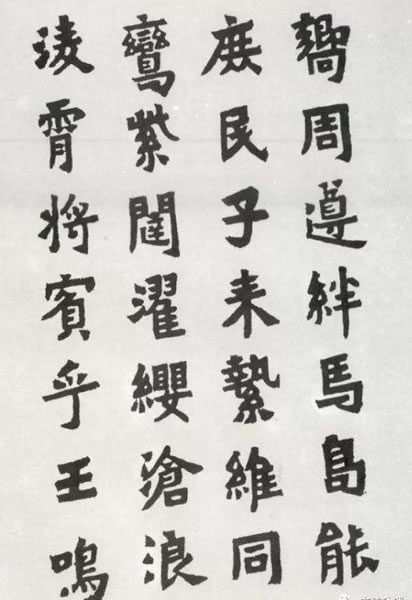 嚮周遵絆馬曷能
庶民子来縶維同
鸞紫闥濯纓滄浪
淩霄将賓乎王鳴